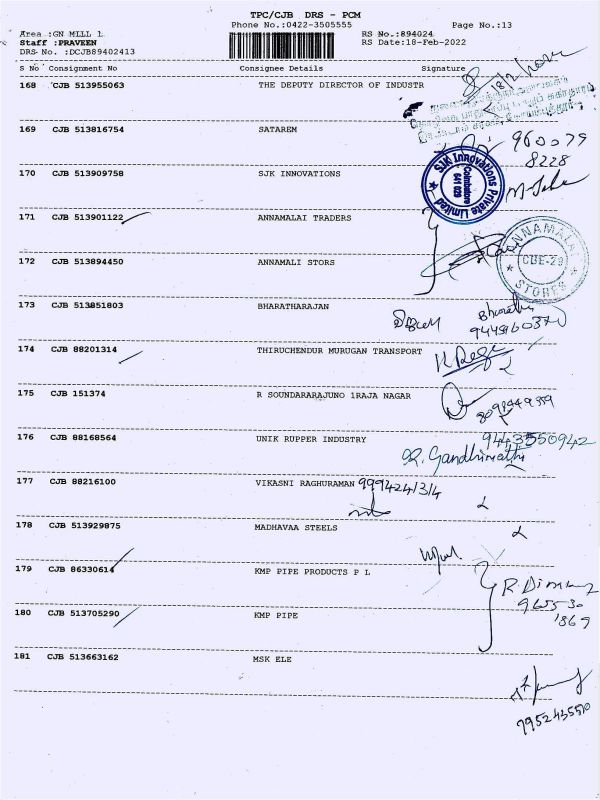 TPC/CJB DRS - PCM
Phone No.:0422-3505555
Page No.:13
Area :GN MILL 1
RS No.:894024
Staff :PRAVEEN
RS Date:18-Feb-2022
DRS No. :DCJB89402413
S No Consignment No Consignee Details Signature
168 CJB 513955063 THE DEPUTY DIRECTOR OF INDUSTR
18/2
169 CJB 513816754 SATAREM
960079
8228
170 CJB 513909758 SJK INNOVATIONS
SJK Innovations Private Limited
Coimbatore
641 029
171 CJB 513901122 ANNAMALAI TRADERS
ANNAMALAI
CBE-29
STORES
172 CJB 513894450 ANNAMALI STORS
173 CJB 513851803 BHARATHARAJAN
174 CJB 88201314 THIRUCHENDUR MURUGAN TRANSPORT
175 CJB 151374 R SOUNDARARAJUNO 1RAJA NAGAR
176 CJB 88168564 UNIK RUPPER INDUSTRY
9443550942
R. Gandhimathi
177 CJB 88216100 VIKASNI RAGHURAMAN
178 CJB 513929875 MADHAVAA STEELS
179 CJB 86330614 KMP PIPE PRODUCTS P L
180 CJB 513705290 KMP PIPE
181 CJB 513663162 MSK ELE